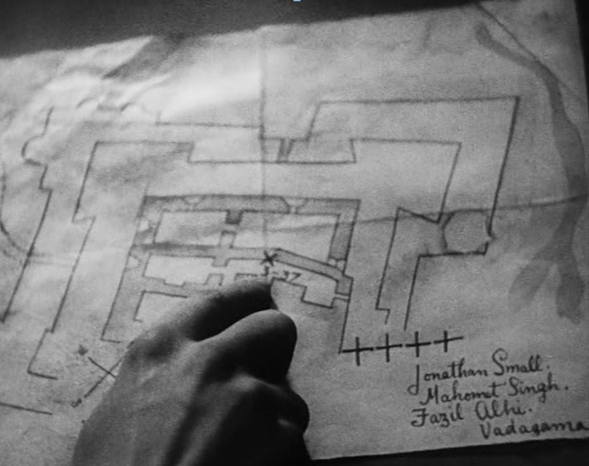 3-37
Jonathan Small.
Mahomet Singh.
Fazil Alhi.
Vadagama